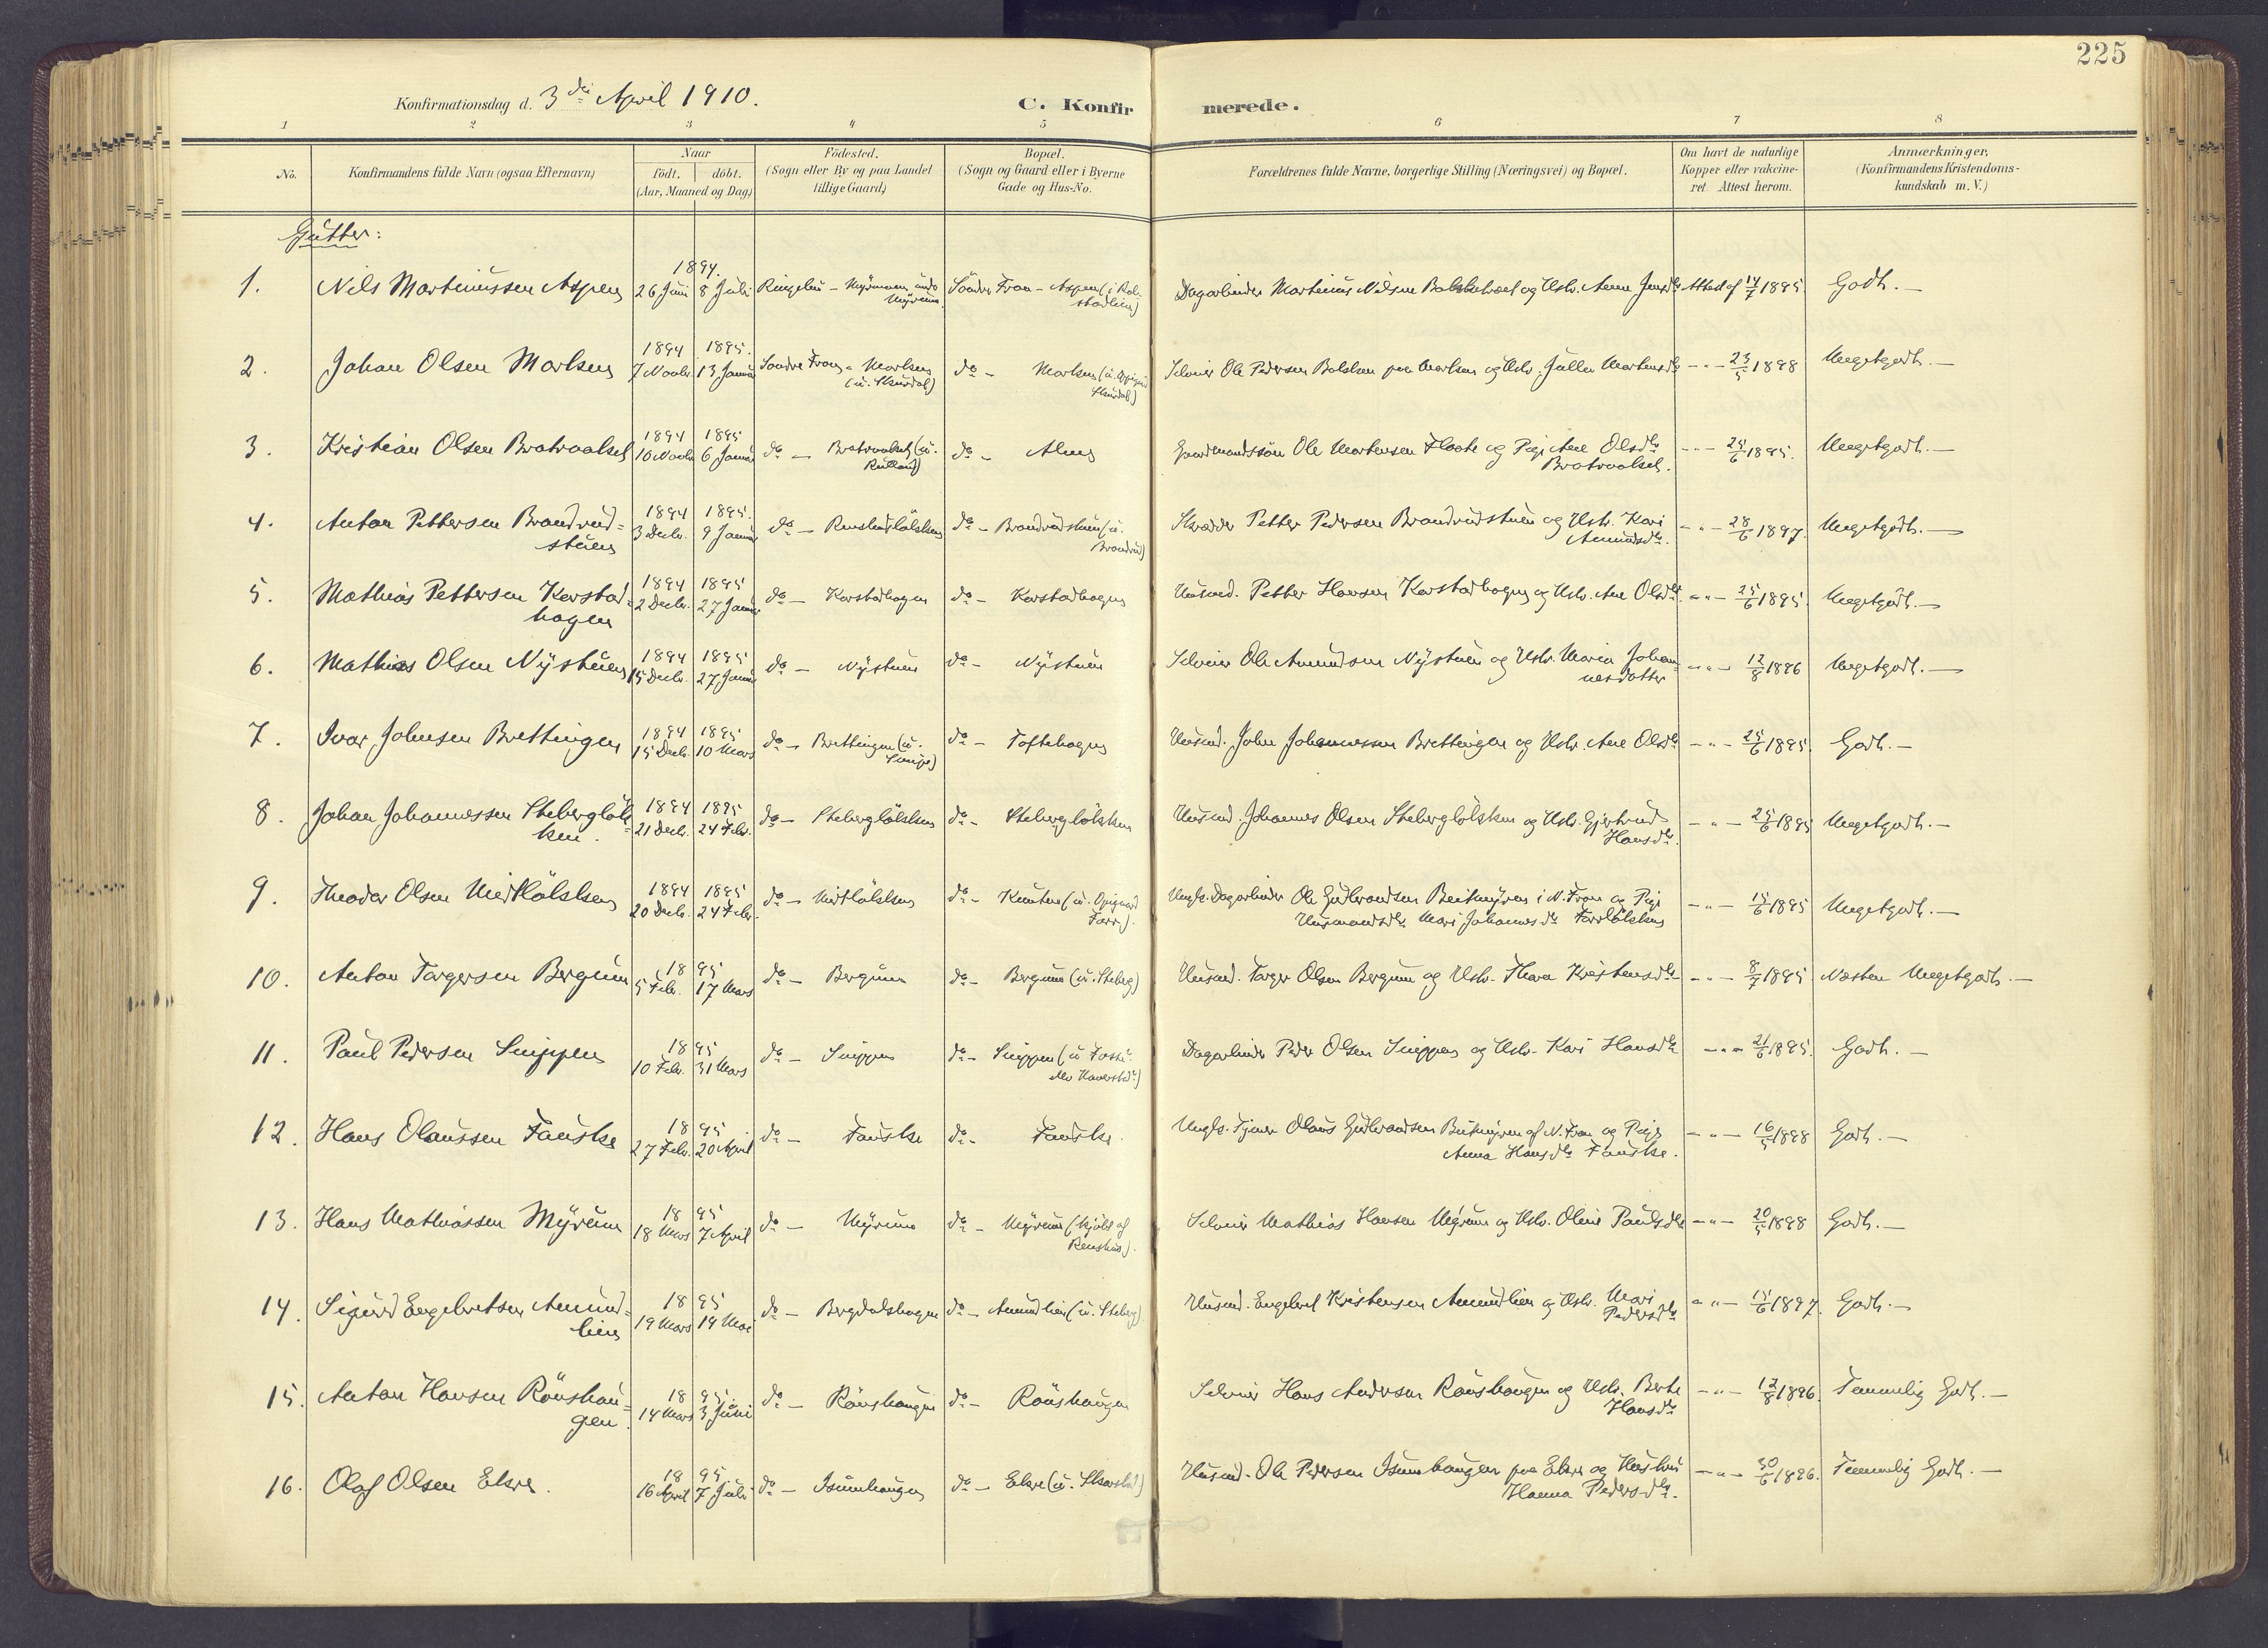 225
Konfirmationsdag d. 3die April 1910.
C. Konfirmerede.
1 2 3 4 5 6 7 8
No. Konfirmandens fulde Navn (ogsaa Efternavn) Naar födt. döbt. (Aar, Maaned og Dag) Födested. (Sogn eller By og paa Landet tillige Gaard) Bopæl. (Sogn og Gaard eller i Byerne Gade og Hus-No. Forældrenes fulde Navne, borgerlige Stilling (Næringsvei) og Bopæl. Om havt de naturlige Kopper eller vakcineret. Attest herom. Anmærkninger. (Konfirmandens Kristendomskundskab m. V.)
Gutter:
1. Nils Martinussen Aspen 1894. 26 Juni 8 Juli Ringebu - Myrmoen under Myrum. Söndre Fron - Aspen Dagarbeider Martinus Nilsen og Hstr. Anne Jensdtr Attest af 14/7 1895 Godt. —
2. Johan Olsen Morken 1894 7 Novbr. 1895. 13 Januar Söndre Fron - Morken (u. Skurdal) do - Morken (u. Opigard Skurdal) Selveier Ole Pedersen Bolsken paa Morken og Hstr. Julle Mortensdtr - " - 23/5 1898 Megetgodt. —
3. Kristian Olsen Bratvoolset 1894 10 Novbr 1895 6 Januar do - Bratvoolset (u. Rulland) do - Alme Gaardmandssön Ole Mortensen Flaate og Pige Ane Olsdtr Bratvoolset. - " - 25/6 1895. Megetgodt. —
4. Anton Pettersen Brandrudstuen 1894 3 Decbr. 1895. 9 Januar do - Rensludlökken do - Brandrudstuen (u. Brandrud) Skrædder Petter Pedersen Brandrudstuen og Hstr. Kari Amundsdtr. - " - 28/6 1897. Megetgodt. —
5. Mathias Pettersen Korstadhagen 1894 2 Decbr. 1895 27 Januar do - Korstadhagen do - Korstadhagen Husmd. Petter Hansen Korstadhagen og Hstr. Ane Olsdtr. - " - 25/6 1895. Megetgodt. —
6. Mathias Olsen Nystuen 1894 15 Decbr. 1895 27 Januar do - Nystuen do - Nystuen Selveier Ole Amundsen Nystuen og Hstr. Maria Johannesdatter - " - 12/8 1896 Megetgodt. —
7. Ivar Johnsen Brettingen 1894 15 Decbr. 1895 10 Mars do - Brettingen (u. ) do - Toftehagen Husmd. John Johannessen Brettingen og Hstr. Ane Olsdtr - " - 25/6 1895. Godt. —
8. Johan Johannessen Stebergløkken. 1894 21 Decbr. 1895 24 Febr. do - Steberglökken do - Steberglökken Husmd. Johannes Olsen Steberglökken og Hstr. Gjertrud Hansdtr. - " - 25/6 1895 Megetgodt. —
9. Theodor Olsen Midtlökken 1894 20 Decbr. 1895 24 Febr. do - Midtlökken do - (u. Opigard Forr). Ungk. Dagarbeider Ole Gudbrandsen i N. Fron og Pige Husmandsdtr. Mari Johannesdtr Forrlökken - " - 15/6 1895 Megetgodt. —
10. Anton Torgersen Bergum 1895 5 Febr. 17 Mars do - Bergum do - Bergum (u. Steberg) Husmd. Torger Olsen Bergum og Hstr. Thora Kristensdtr - " - 8/7 1895. Næsten Megetgodt. —
11. Paul Pedersen Snippen 1895 10 Febr. 31 Mars do - Snippen do - Snippen Dagarbeider Peder Olsen Snippen og Hstr. Kari Hansdtr - " - 21/6 1895. Godt. —
12. Hans Olaussen Fauske 1895 27 Febr. 20 April do - Fauske do - Fauske. Ungk. Tjener Olaus Gudbrandsen af N. Fron og Pige Anna Hansdtr Fauske. - " - 16/5 1898 Godt. —
13. Hans Mathiassen Myrum 1895 18 Mars 7 April do - Myrum do - Myrum Selveier Mathias Hansen Myrum og Hstr. Oline Paulsdtr - " - 20/5 1898 Godt. —
14. Sigurd Engebretsen Amundlien 1895 19 Mars 19 Mai do - Bergdalshagen do - Amundlien (u. Steberg) Husmd. Engebret Kristensen Amundlien og Hstr. Mari Pedersdtr - " - 15/6 1897. Godt. —
15. Anton Hansen Rönshaugen. 1895. 14 Mars 3 Juni do - Rönshaugen do - Rönshaugen Selveier Hans Andersen Rönshaugen og Hstr. Berte Hansdtr - " - 12/8 1896. Temmelig Godt. —
16. Olaf Olsen Ekre. 1895. 16 April 7 Juli do - Isumhaugen do - Ekre (u. Skarstad) Husmd. Ole Pedersen Isumhaugen paa Ekre og Hustru Hanna Pedersdtr. - " - 30/6 1896. Temmelig Godt. —